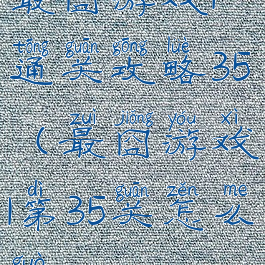 最囧游戏1
tōng guān gōng lüè
通关攻略35
zuì jiǒng yóu xì
(最囧游戏
dì guān zěn me
1第35关怎么
guò